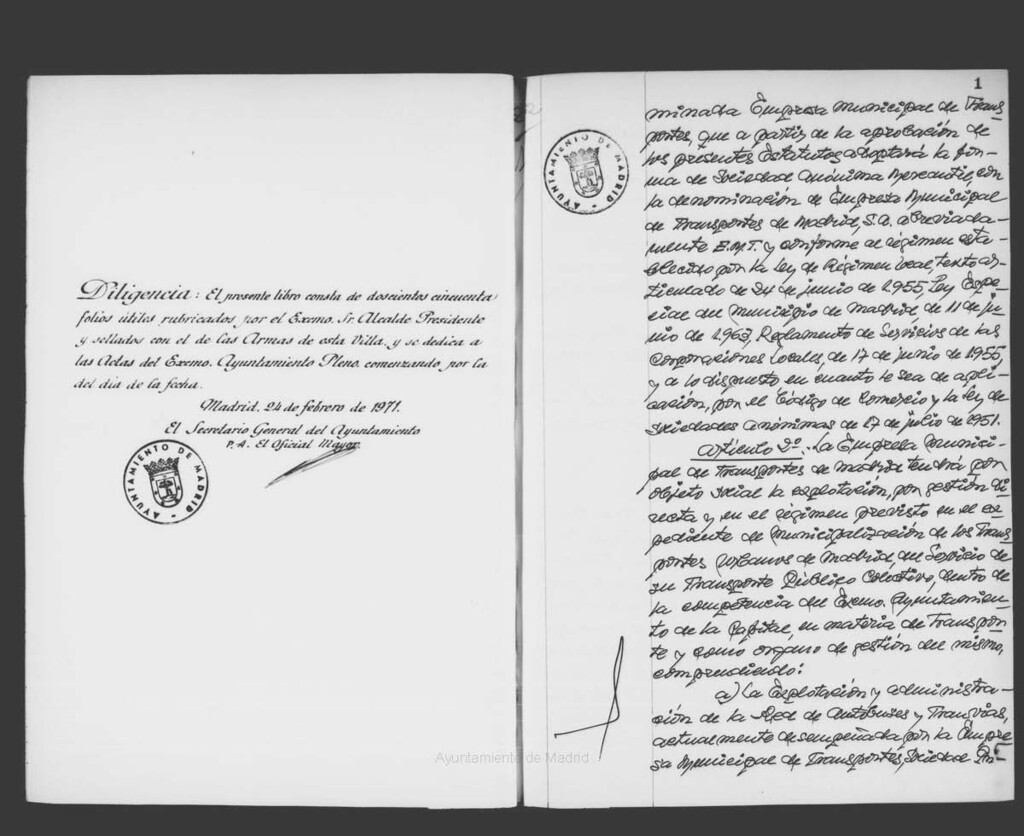 Diligencia: El presente libro consta de doscientos cincuenta
folios útiles rubricados por el Excmo. Sr. Alcalde Presidente
y sellados con el de las Armas de esta Villa, y se dedica a
las Actas del Excmo. Ayuntamiento Pleno, comenzando por la
del día de la fecha.
Madrid, 24 de febrero de 1971.
El Secretario General del Ayuntamiento
P. A. El Oficial Mayor
AYUNTAMIENTO DE MADRID
1
AYUNTAMIENTO DE MADRID
minada Empresa Municipal de Trans-
portes, que a partir de la aprobación de
los presentes Estatutos adoptará la for-
ma de Sociedad Anónima Mercantil, con
la denominación de Empresa Municipal
de Transportes de Madrid, S.A. abreviada-
mente E.M.T. y conforme al régimen esta-
blecido por la Ley de Régimen Local, texto ar-
ticulado de 24 de junio de 1.955, Ley Espe-
cial del Municipio de Madrid de 11 de ju-
nio de 1.963, Reglamento de Servicios de las
Corporaciones Locales, de 17 de junio de 1955,
y a lo dispuesto en cuanto le sea de apli-
cación, por el Código de Comercio y la Ley de
Sociedades Anónimas de 17 de julio de 1951.
Artículo 2º. La Empresa Munici-
pal de Transportes de Madrid tendrá por
objeto social la explotación, por gestión di-
recta y en el régimen previsto en el ex-
pediente de Municipalización de los Trans-
portes Urbanos de Madrid, del Servicio de
su Transporte Público Colectivo, dentro de
la competencia del Excmo. Ayuntamien-
to de la Capital, en materia de Transpor-
te y como órgano de gestión del mismo,
comprendiendo:
a) La Explotación y administra-
ción de la Red de Autobuses y Tranvías,
actualmente desempeñada por la Empre-
sa Municipal de Transportes, Sociedad An-
Ayuntamiento de Madrid